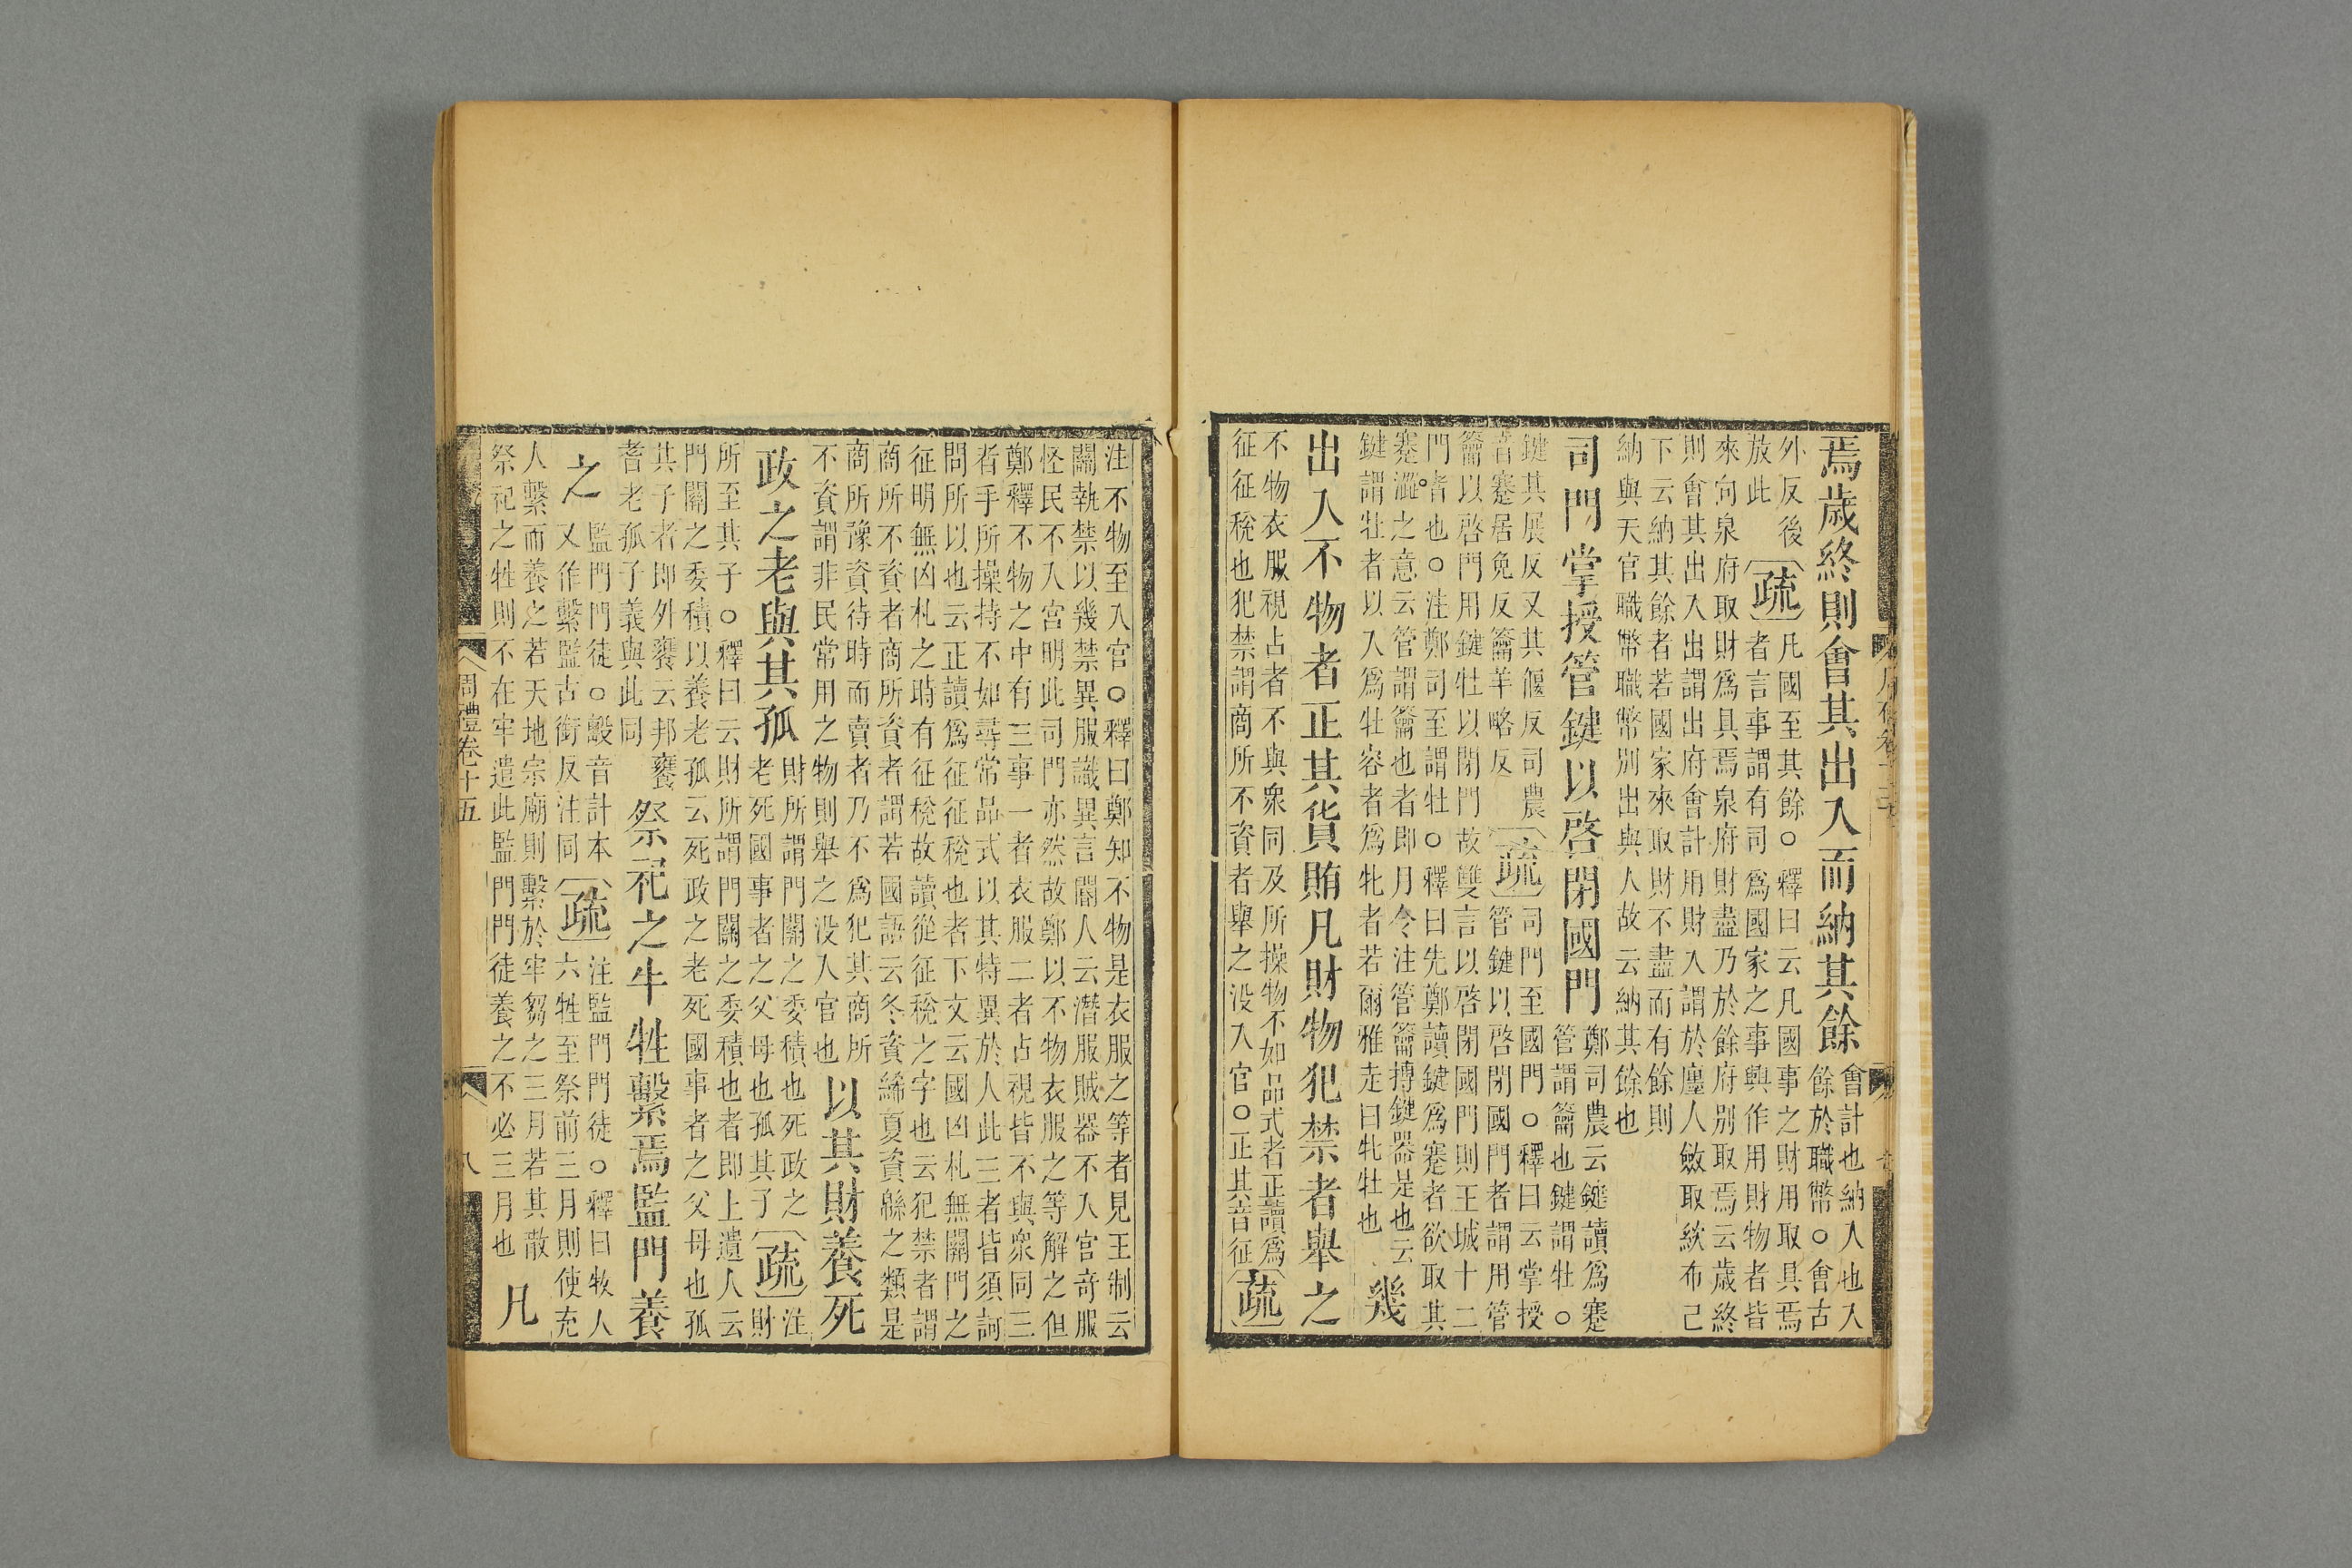 焉歲終則會其出入而納其餘
會計也納入也入
餘於職幣○會古
外反後
放此
疏
凡國至其餘○釋曰云凡國事之財用取具焉
者言事謂有司爲國家之事興作用財物者皆
來向泉府取財爲具焉泉府財盡乃於餘府別取焉云歲終
則會其出入出謂出府會計用財入謂於廛人斂取紋布己
下云納其餘者若國家來取財不盡而有餘則
納與天官職幣職幣別出與人故云納其餘也
司門掌授管鍵以啓閉國門
鄭司農云鍵讀爲蹇
管謂籥也鍵謂牡○
鍵其展反又其偃反司農
音蹇居免反籥羊略反
疏
司門至國門○釋曰云掌授
管鍵以啓閉國門者謂用管
籥以啓門用鍵牡以閉門故雙言以啓閉國門則王城十二
門者也○注鄭司至謂牡○釋曰先鄭讀鍵爲蹇者欲取其
蹇澀之意云管謂籥也者即月令注管籥搏鍵器是也云
鍵謂牡者以入爲牡容者爲牝者若爾雅走曰牝牡也
幾
出入不物者正其貨賄凡財物犯禁者舉之
不物衣服視占者不與衆同及所操物不如品式者正讀爲
征征稅也犯禁謂商所不資者舉之没入官○正其音征
疏
注不物至入官○釋曰鄭知不物是衣服之等者見王制云
關執禁以幾禁異服識異言閽人云潛服賊器不入宮奇服
怪民不入宮明此司門亦然故鄭以不物衣服之等解之但
鄭釋不物之中有三事一者衣服二者占視皆不與衆同三
者手所操持不如尋常品式以其特異於人此三者皆須訶
問所以也云正讀爲征征稅也者下文云國凶札無關門之
征明無凶札之時有征稅故讀從征稅之字也云犯禁者謂
商所不資者商所資者謂若國語云冬資絺夏資緜之類是
商所豫資待時而賣者乃不爲犯其商所
不資謂非民常用之物則舉之没入官也
以其財養死
政之老與其孤
財所謂門關之委積也死政之
老死國事者之父母也孤其子
疏
注
財
所至其子○釋曰云財所謂門關之委積也者即上遺人云
門關之委積以養老孤云死政之老死國事者之父母也孤
其子者即外饔云邦饔
耆老孤子義與此同
祭祀之牛牲繫焉監門養
之
監門門徒○毄音計本
又作繫監古銜反注同
疏
注監門門徒○釋曰牧人
六牲至祭前三月則使充
人繫而養之若天地宗廟則繫於牢芻之三月若其散
祭祀之牲則不在牢遣此監門門徒養之不必三月也
凡
周禮卷十五
八